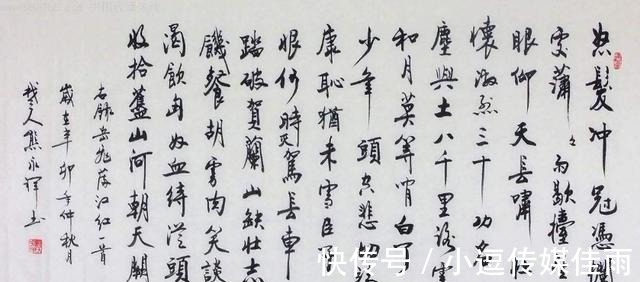 怒髮冲冠憑闌
處蕭々雨歇擡望
眼仰天長嘯壯
懷激烈三十功名
塵與土八千里路雲
和月莫等閒白了
少年頭空悲切
康恥猶未雪臣
恨何時滅駕長車
踏破賀蘭山缺壯志
饑餐胡虜肉笑談
渴飲匈奴血待從頭
收拾舊山河朝天闕
右錄岳飛滿江红一首
歲在辛卯年仲秋月
人熊永輝书
快传号 / 小逗传媒佳雨